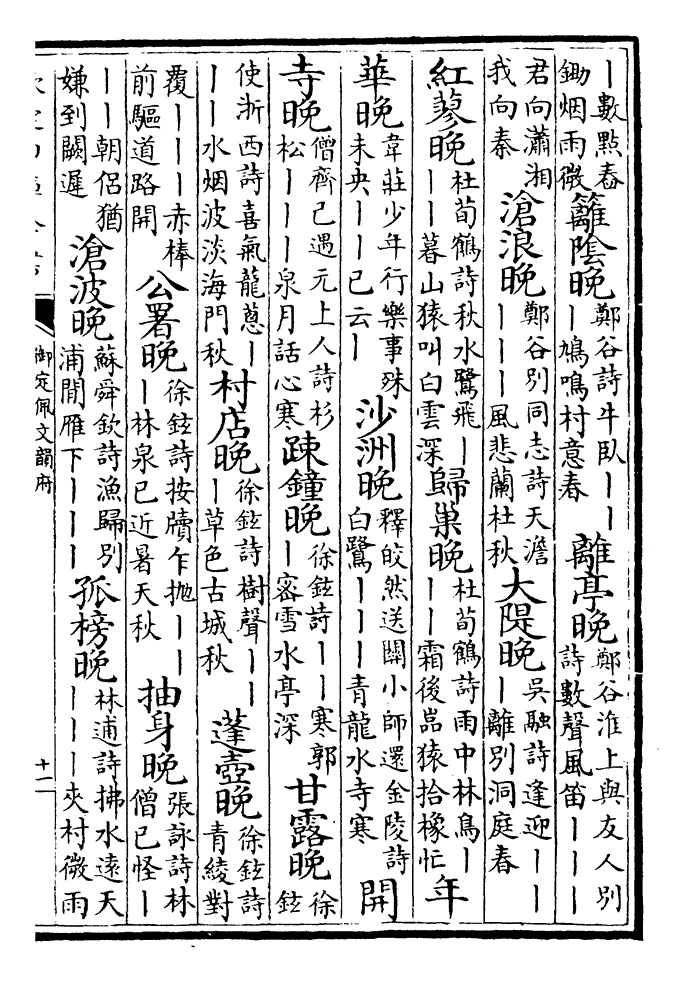 ｜數點春鋤烟雨微籬陰晚鄭谷詩牛臥｜｜｜鳩鳴村意春離亭晚鄭谷淮上與友人別詩數聲風笛｜｜｜
君向瀟湘我向秦滄浪晚鄭谷別同志詩天澹｜｜｜風悲蘭杜秋大隄晚吳融詩逢迎｜｜｜離別洞庭春
紅蓼晚杜荀鶴詩秋水鷺飛｜｜｜暮山猿叫白雲深歸巢晚杜荀鶴詩雨中林鳥｜｜｜霜後嵓猿拾橡忙年
華晚韋莊少年行樂事殊未央｜｜已云｜沙洲晚釋皎然送關小師還金陵詩白鷺｜｜｜青龍水寺寒開
寺晚僧齊己遇元上人詩杉松｜｜｜泉月話心寒疎鐘晚徐鉉詩｜｜寒郭｜密雪水亭深甘露晚徐鉉
使浙西詩喜氣龍蔥｜｜｜水烟波淡海門秋村店晚徐鉉詩樹聲｜｜｜草色古城秋蓬壺晚徐鉉詩青綾對
覆｜｜｜赤棒前驅道路開公署晚徐鉉詩按牘乍拋｜｜｜林泉已近暑天秋抽身晚張詠詩林僧已怪｜
｜｜朝侶猶嫌到闕遲滄波晚蘇舜欽詩漁歸別浦閒雁下｜｜｜孤榜晚林逋詩拂水遠天｜｜｜夾村微雨
御定佩文韻府
十一